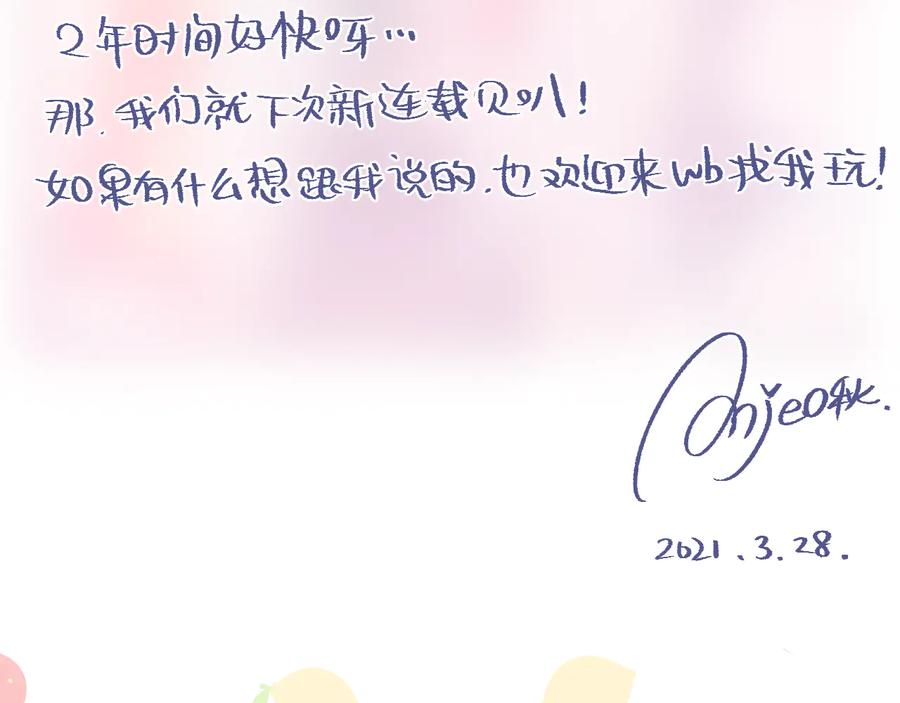 2年时间好快呀…
那.我们就下次新连载见叭!
如果有什么想跟我说的.也欢迎来wb找我玩!
Anjeo秋.
2021.3.28.